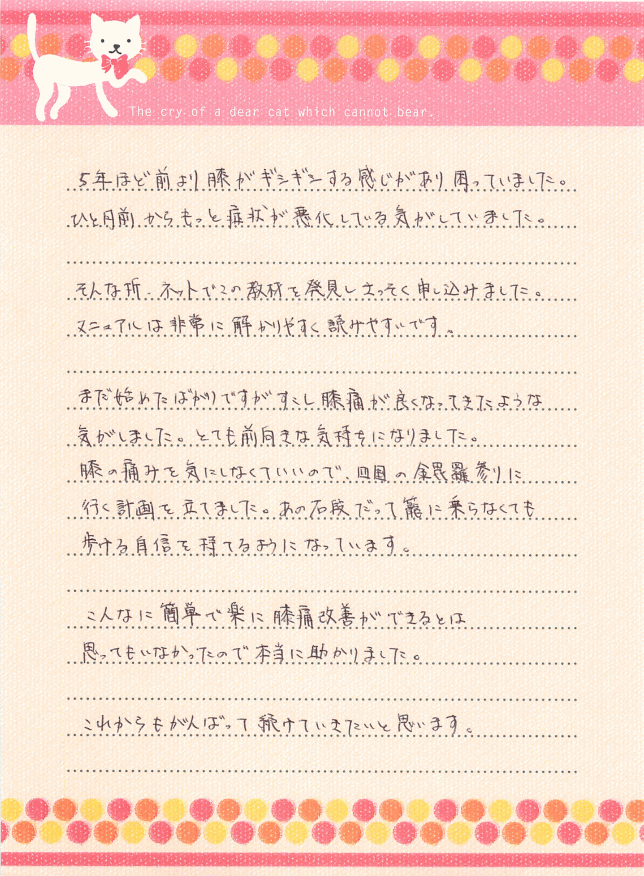 The cry of a dear cat which cannot bear.
5年ほど前より膝がギシギシする感じがあり困っていました。
ひと月前からもっと症状が悪化している気がしていました。
そんな折、ネットでこの教材を発見しさっそく申し込みました。
マニュアルは非常に解かりやすく読みやすいです。
まだ始めたばかりですがすこし膝痛が良くなってきたような
気がしました。とても前向きな気持ちになりました。
膝の痛みを気にしなくていいので、四国の金毘羅参りに
行く計画を立てました。あの石段だって籠に乗らなくても
歩ける自信を持てるようになっています。
こんなに簡単で楽に膝痛改善ができるとは
思ってもいなかったので本当に助かりました。
これからもがんばって続けていきたいと思います。